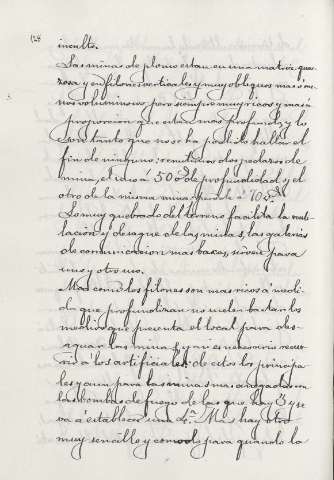 124
inculto.
Las minas de plomo estan en una matriz, qua
rzosa, y en filones verticales y muy oblíqeos mas ó me
nos voluminosos pero siempre muy ricos y mas á
proporcion que estan mas profundos, y lo
son tanto que no se ha podido hallar el
fin de ninguno; remito dos pedazos de
mina, el uno á 50 vs de profundidad y el
otro de la misma mina á 70 vs.
Lo muy quebrado del terreno facilita la venti
lacion y desague de las minas, las galerias
de comunicacion mas bajas, sirven para
uno y otro uso.
Mas como los filones son mas ricos á medi
da que profundizan no suelen bastar los
medios que presenta el local para des-
aguar las minas, y ya es necesario recur
rir á los artificiales; de estos los principa
les y aun para las minas mas anegadas son
las bombas de fuego de las que hay 3 y se
va á establecer una 4.ª Mas hay otro
muy sencillo y comodo para quando la